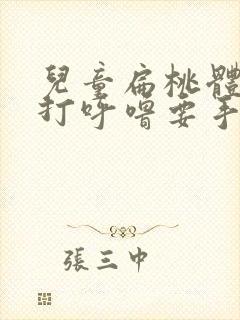 兒童扁桃體
打呼嚕要手
張三中